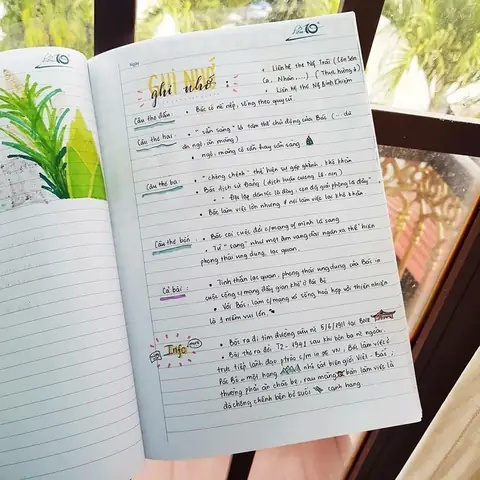 Ngày
GHI NHỚ
ghi nhớ :
• Liên hệ thơ Ng Trãi (Côn Sơn
Ca, Nhàn...) (Thực hưởng ↓)
• Liên hệ thơ Ng Bỉnh Khiêm
Câu thơ đầu: • Bác có nề nếp, sống theo quy củ
Câu thơ hai: • "sẵn sàng" là tâm thế chủ động của Bác (... dù
ăn ngô, ăn măng)
• ngô, măng có sẵn hay sẵn sàng.
Câu thơ ba: • "chông chênh" thể hiện sự gập ghềnh, khó khăn
• Bác dịch sử Đảng (dịch luận cương Lê-nin)
- "Đặt lớp dân tộc là đúng, con đg giải phóng là đây"
• Bác làm việc lớn nhưng # nơi làm việc lại khó khăn.
Câu thơ bốn: • Bác coi cuộc đời c/mạng of mình là sang
• Từ "sang" như một âm vang dài ngân xa thể hiện
phong thái ung dung, lạc quan.
Cả bài: • Tinh thần lạc quan, phong thái ung dung của Bác in
cuộc sống c/mạng đầy gian khổ ở Pác Bó
• Với Bác, làm c/mạng và sống hoà hợp với thiên nhiên
là 1 niềm vui lớn.
Info • Bác ra đi tìm đường cứu nc 5/6/1911 tại Bến
• Bài thơ ra đời T2-1941 sau khi bôn ba nc ngoài.
trực tiếp lãnh đạo p.trào c/m in nc VN; Bác làm việc ở
Pác Bó - một hang nhỏ sát biên giới Việt - ;
thường phải ăn cháo bẹ, rau măng bàn làm việc là
đá chông chênh bên bờ suối cạnh hang.